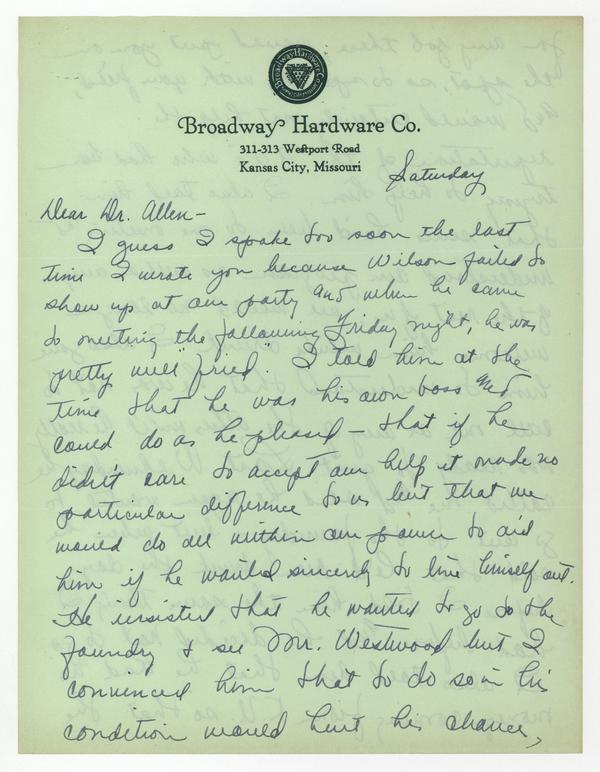 Broadway Hardware Co.
Broadway Hardware Co.
311-313 Westport Road
Kansas City, Missouri
Saturday
Dear Dr. Allen-
I guess I spoke too soon the last
time I wrote you because Wilson failed to
show up at our party and when he came
to meeting the following Friday night, he was
pretty well "fried". I told him at the
time that he was his own boss and
could do as he pleased - that if he
didn't care to accept our help it made no
particular difference to us but that we
would do all within our power to aid
him if he wanted sincerely to line himself out.
He insisted that he wanted to go to the
foundry & see Mr. Westwood but I
convinced him that to do so in his
condition would hurt his chance,